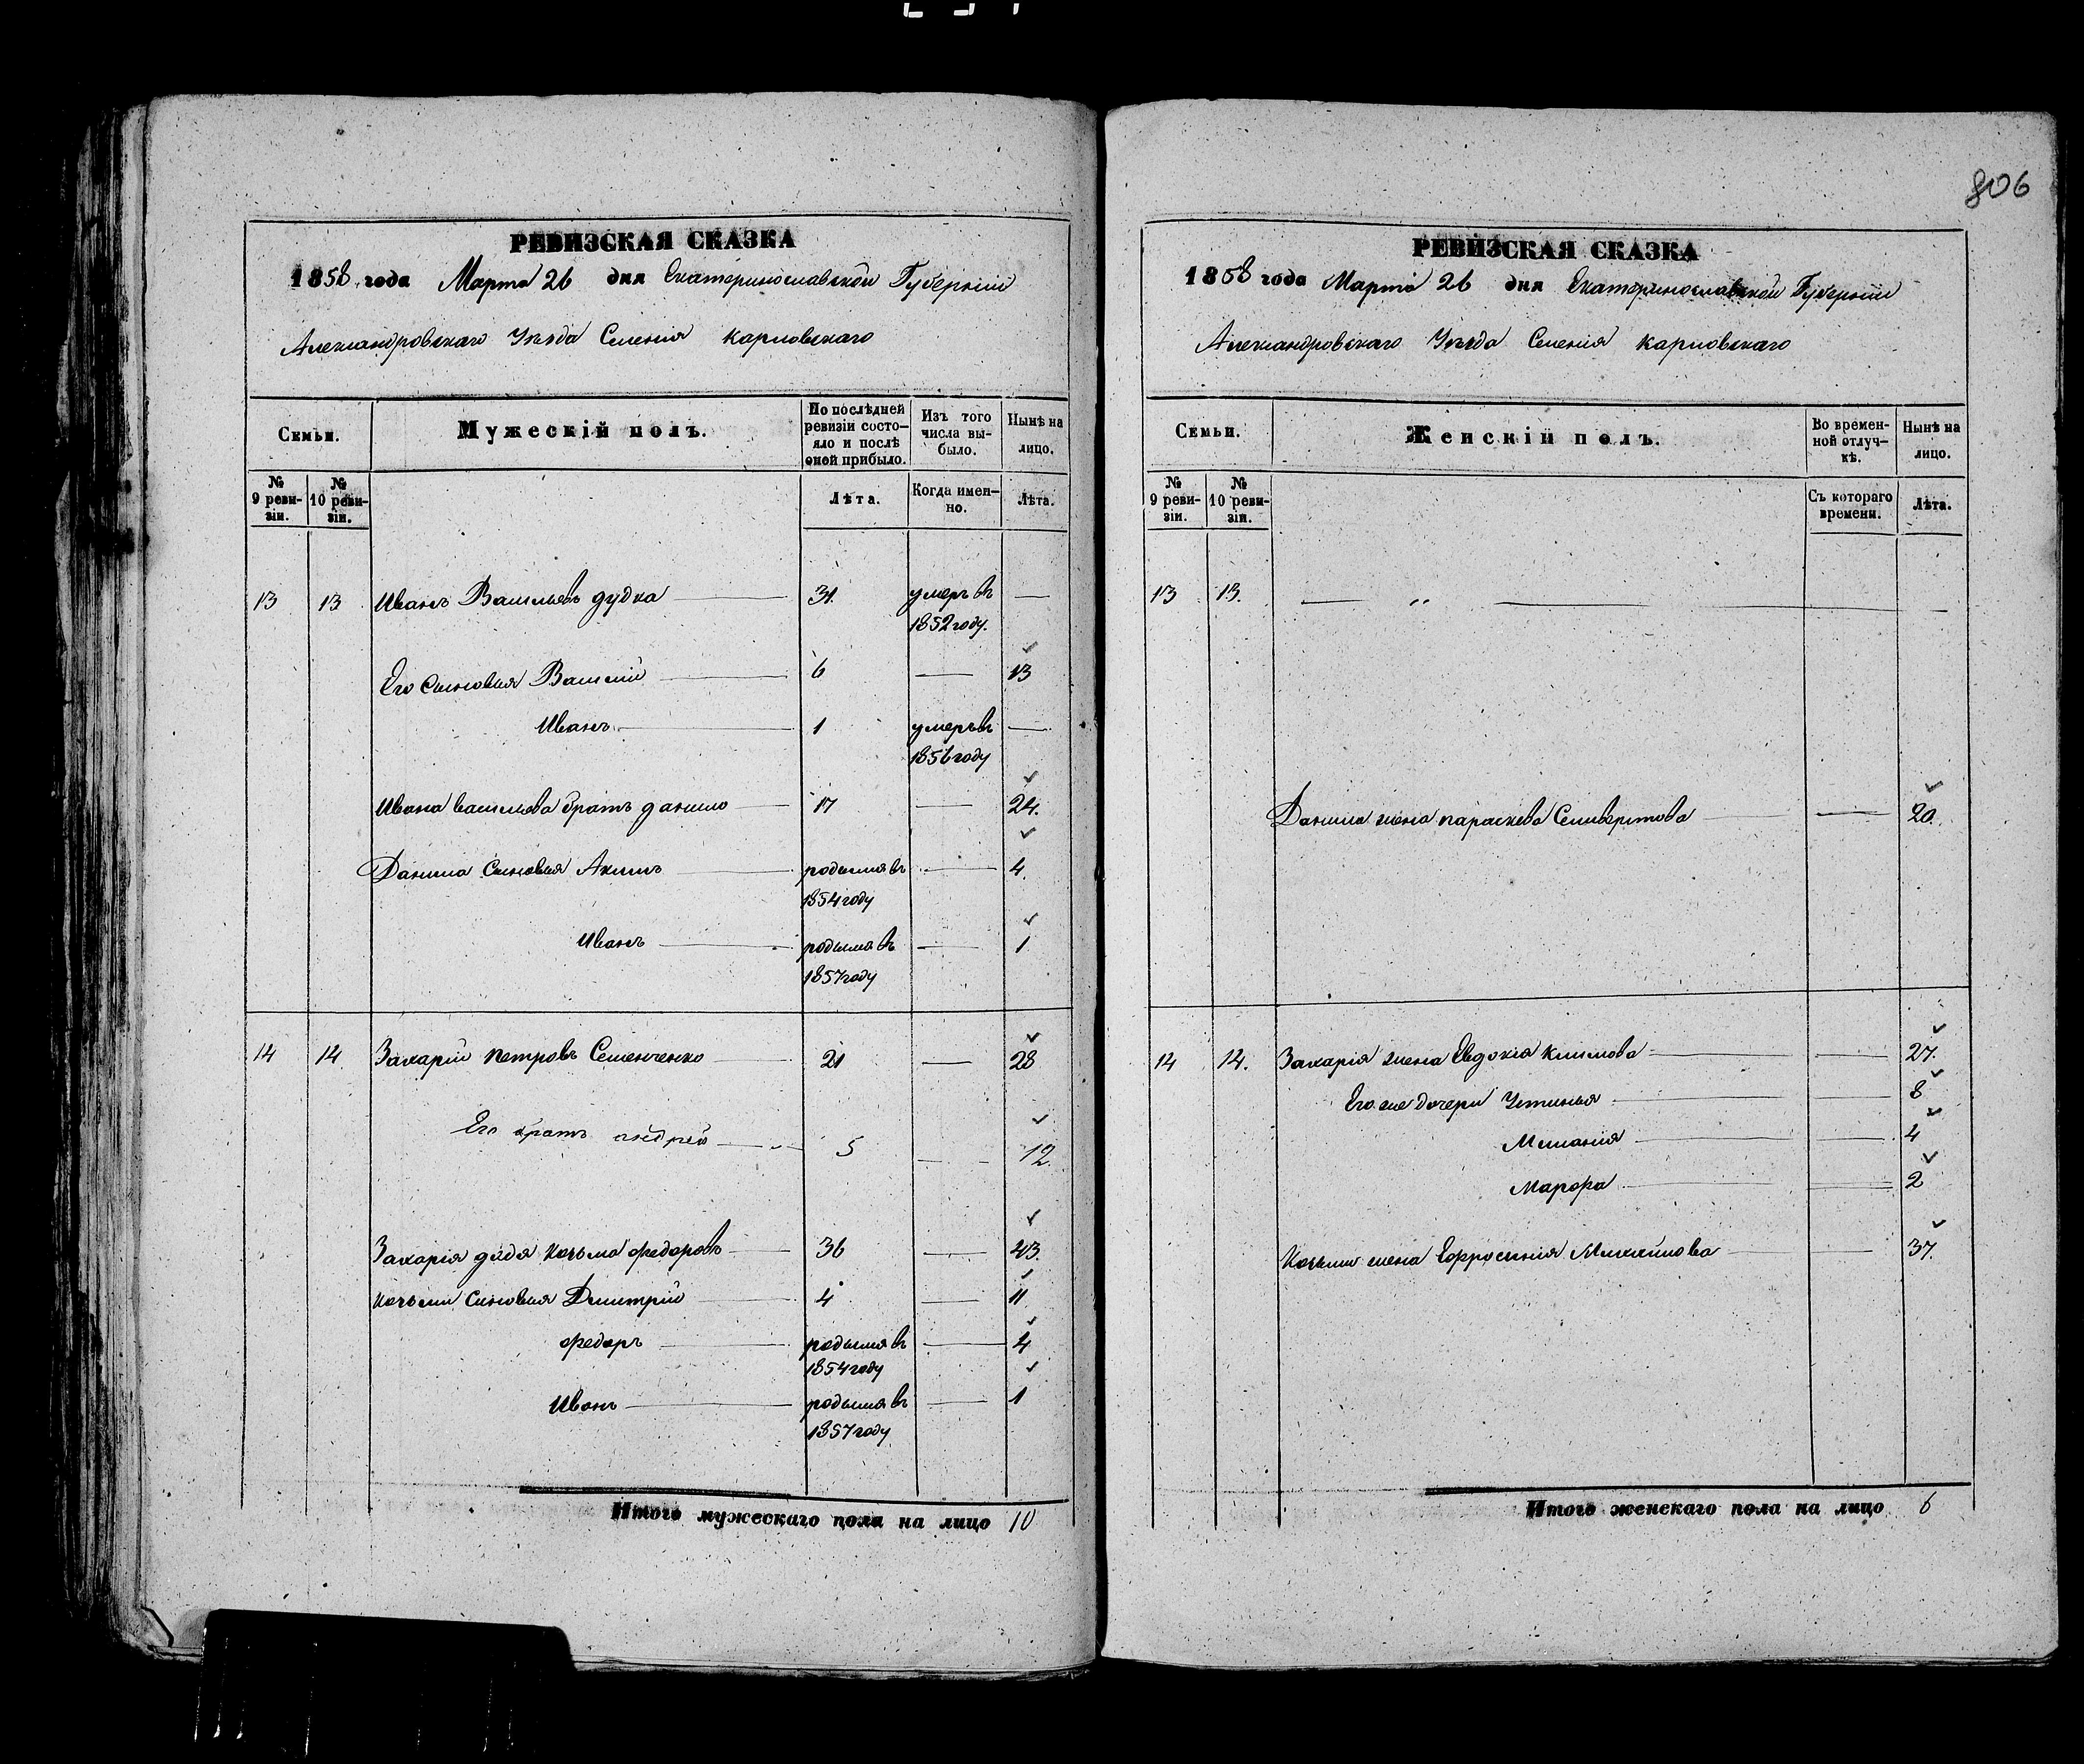 806
РЕВИЗСКАЯ СКАЗКА
1858 года Марта 26 дня Екатеринославской Губерніи
Александровскаго Уѣзда Селенія Карловскаго
Семьи.
Мужескій полъ.
По послѣдней ревизіи состо-
яло и послѣ
оной прибыло.
Изъ того
числа вы-
было.
Нынѣ на
лицо.
№
9 реви-
зіи.
№
10 реви-
зіи.
Лѣта.
Когда имен-
но.
Лѣта.
13 13 Иванъ Васильевъ дудка 31. умеръ въ —
1852 году.
Его Сыновья Василій 6 — 13
Иванъ 1 умеръ въ —
1856 году
Ивана васильева братъ данило 17 — 24.
Данила Сыновья Акимъ родился въ — 4.
1854 году
Иванъ родился въ — 1
1857 году
14 14 Захарій петровъ Семенченко 21 — 28
Его братъ андрей 5 — 12.
Захарія дядя козьма федоровъ 36 — 43.
козьми Сыновья Дмитрій 4 — 11
федоръ родился въ — 4
1854 году
Иванъ родился въ — 1
1857 году
Итого мужескаго пола на лицо 10
РЕВИЗСКАЯ СКАЗКА
1858 года Марта 26 дня Екатеринославской Губерніи
Александровскаго Уѣзда Селенія Карловскаго
Семьи.
Женскій полъ.
Во времен-
ной отлуч-
кѣ.
Нынѣ на
лицо.
№
9 реви-
зіи.
№
10 реви-
зіи.
Съ котораго
времени.
Лѣта.
13 13. — „ — —
Данила жена параскева Селиверстова — 20.
14 14. Захарія жена Евдокія климова — 27.
Его же дочери Устинья — 8
Миланія — 4
Марфа — 2
Козьми жена Ефросинія Михайлова — 37.
Итого женскаго пола на лицо 6